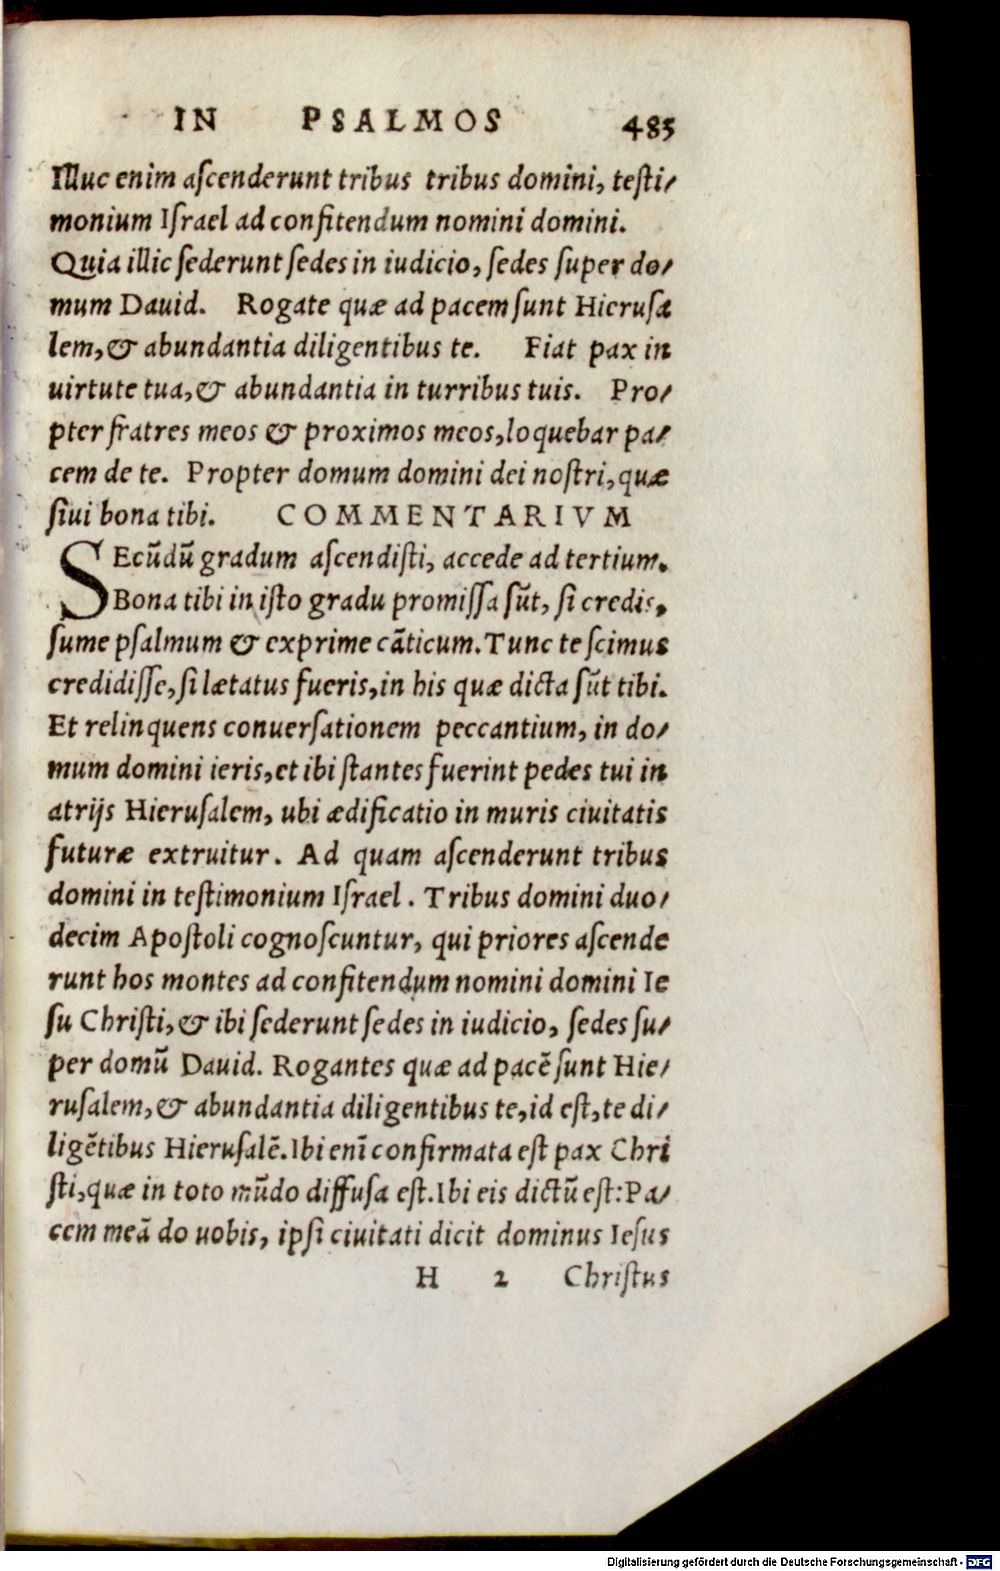 IN PSALMOS 485
Illuc enim aſcenderunt tribus tribus domini, teſti⸗
monium Iſrael ad confitendum nomini domini.
Quia illic ſederunt ſedes in iudicio, ſedes ſuper do⸗
mum Dauid. Rogate quæ ad pacem ſunt Hieruſa
lem, & abundantia diligentibus te. Fiat pax in
uirtute tua, & abundantia in turribus tuis. Pro⸗
pter fratres meos & proximos meos, loquebar pa⸗
cem de te. Propter domum domini dei noſtri, quæ
ſiui bona tibi. COMMENTARIVM
SEcũdũ gradum aſcendiſti, accede ad tertium.
Bona tibi in iſto gradu promiſſa sũt, ſi credis,
ſume pſalmum & exprime cãticum. Tunc te ſcimus
credidiſſe, ſi lætatus fueris, in his quæ dicta ſũt tibi.
Et relinquens conuerſationem peccantium, in do⸗
mum domini ieris, et ibi ſtantes fuerint pedes tui in
atrijs Hieruſalem, ubi ædificatio in muris ciuitatis
futuræ extruitur. Ad quam aſcenderunt tribus
domini in teſtimonium Iſrael. Tribus domini duo⸗
decim Apoſtoli cognoſcuntur, qui priores aſcende
runt hos montes ad confitendum nomini domini Ie
ſu Chriſti, & ibi ſederunt ſedes in iudicio, ſedes ſu⸗
per domũ Dauid. Rogantes quæ ad pacẽ ſunt Hie⸗
ruſalem, & abundantia diligentibus te, id eſt, te di⸗
ligẽtibus Hieruſalẽ. Ibi enĩ confirmata eſt pax Chri
ſti, quæ in toto mũdo diffuſa eſt. Ibi eis dictũ eſt: Pa⸗
cem meã do uobis, ipſi ciuitati dicit dominus Ieſus
H 2 Chriſtus
Digitalisierung gefördert durch die Deutsche Forschungsgemeinschaft - DFG